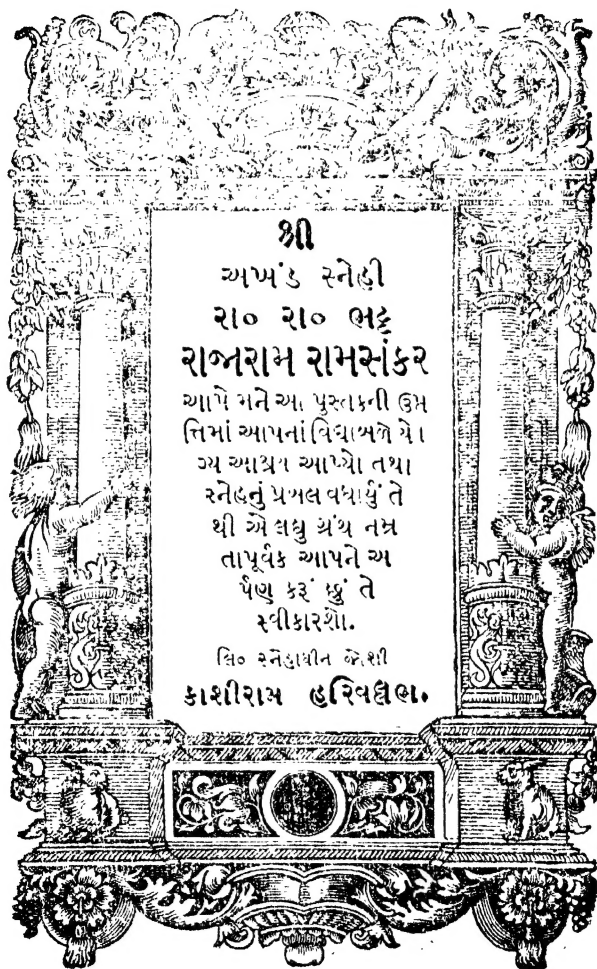 શ્રી
અખંડ સ્નેહી
રા૦ રા૦ ભટ્ટ
રાજારામ રામસંકર
આપે મને આ પુસ્તકની ઉત્પ
ત્તિમાં આપનાં વિદ્યાબળે યો
ગ્ય આશ્રય આપ્યો તથા
સ્નેહનું પ્રબલ વધાર્યું તે
થી એ લઘુ ગ્રંથ નમ્ર
તાપૂર્વક આપને અ
ર્પણ કરૂં છું તે
સ્વીકારશો.
લિ૦ સ્નેહાધીન જોશી
કાશીરામ હરિવલ્લભ.